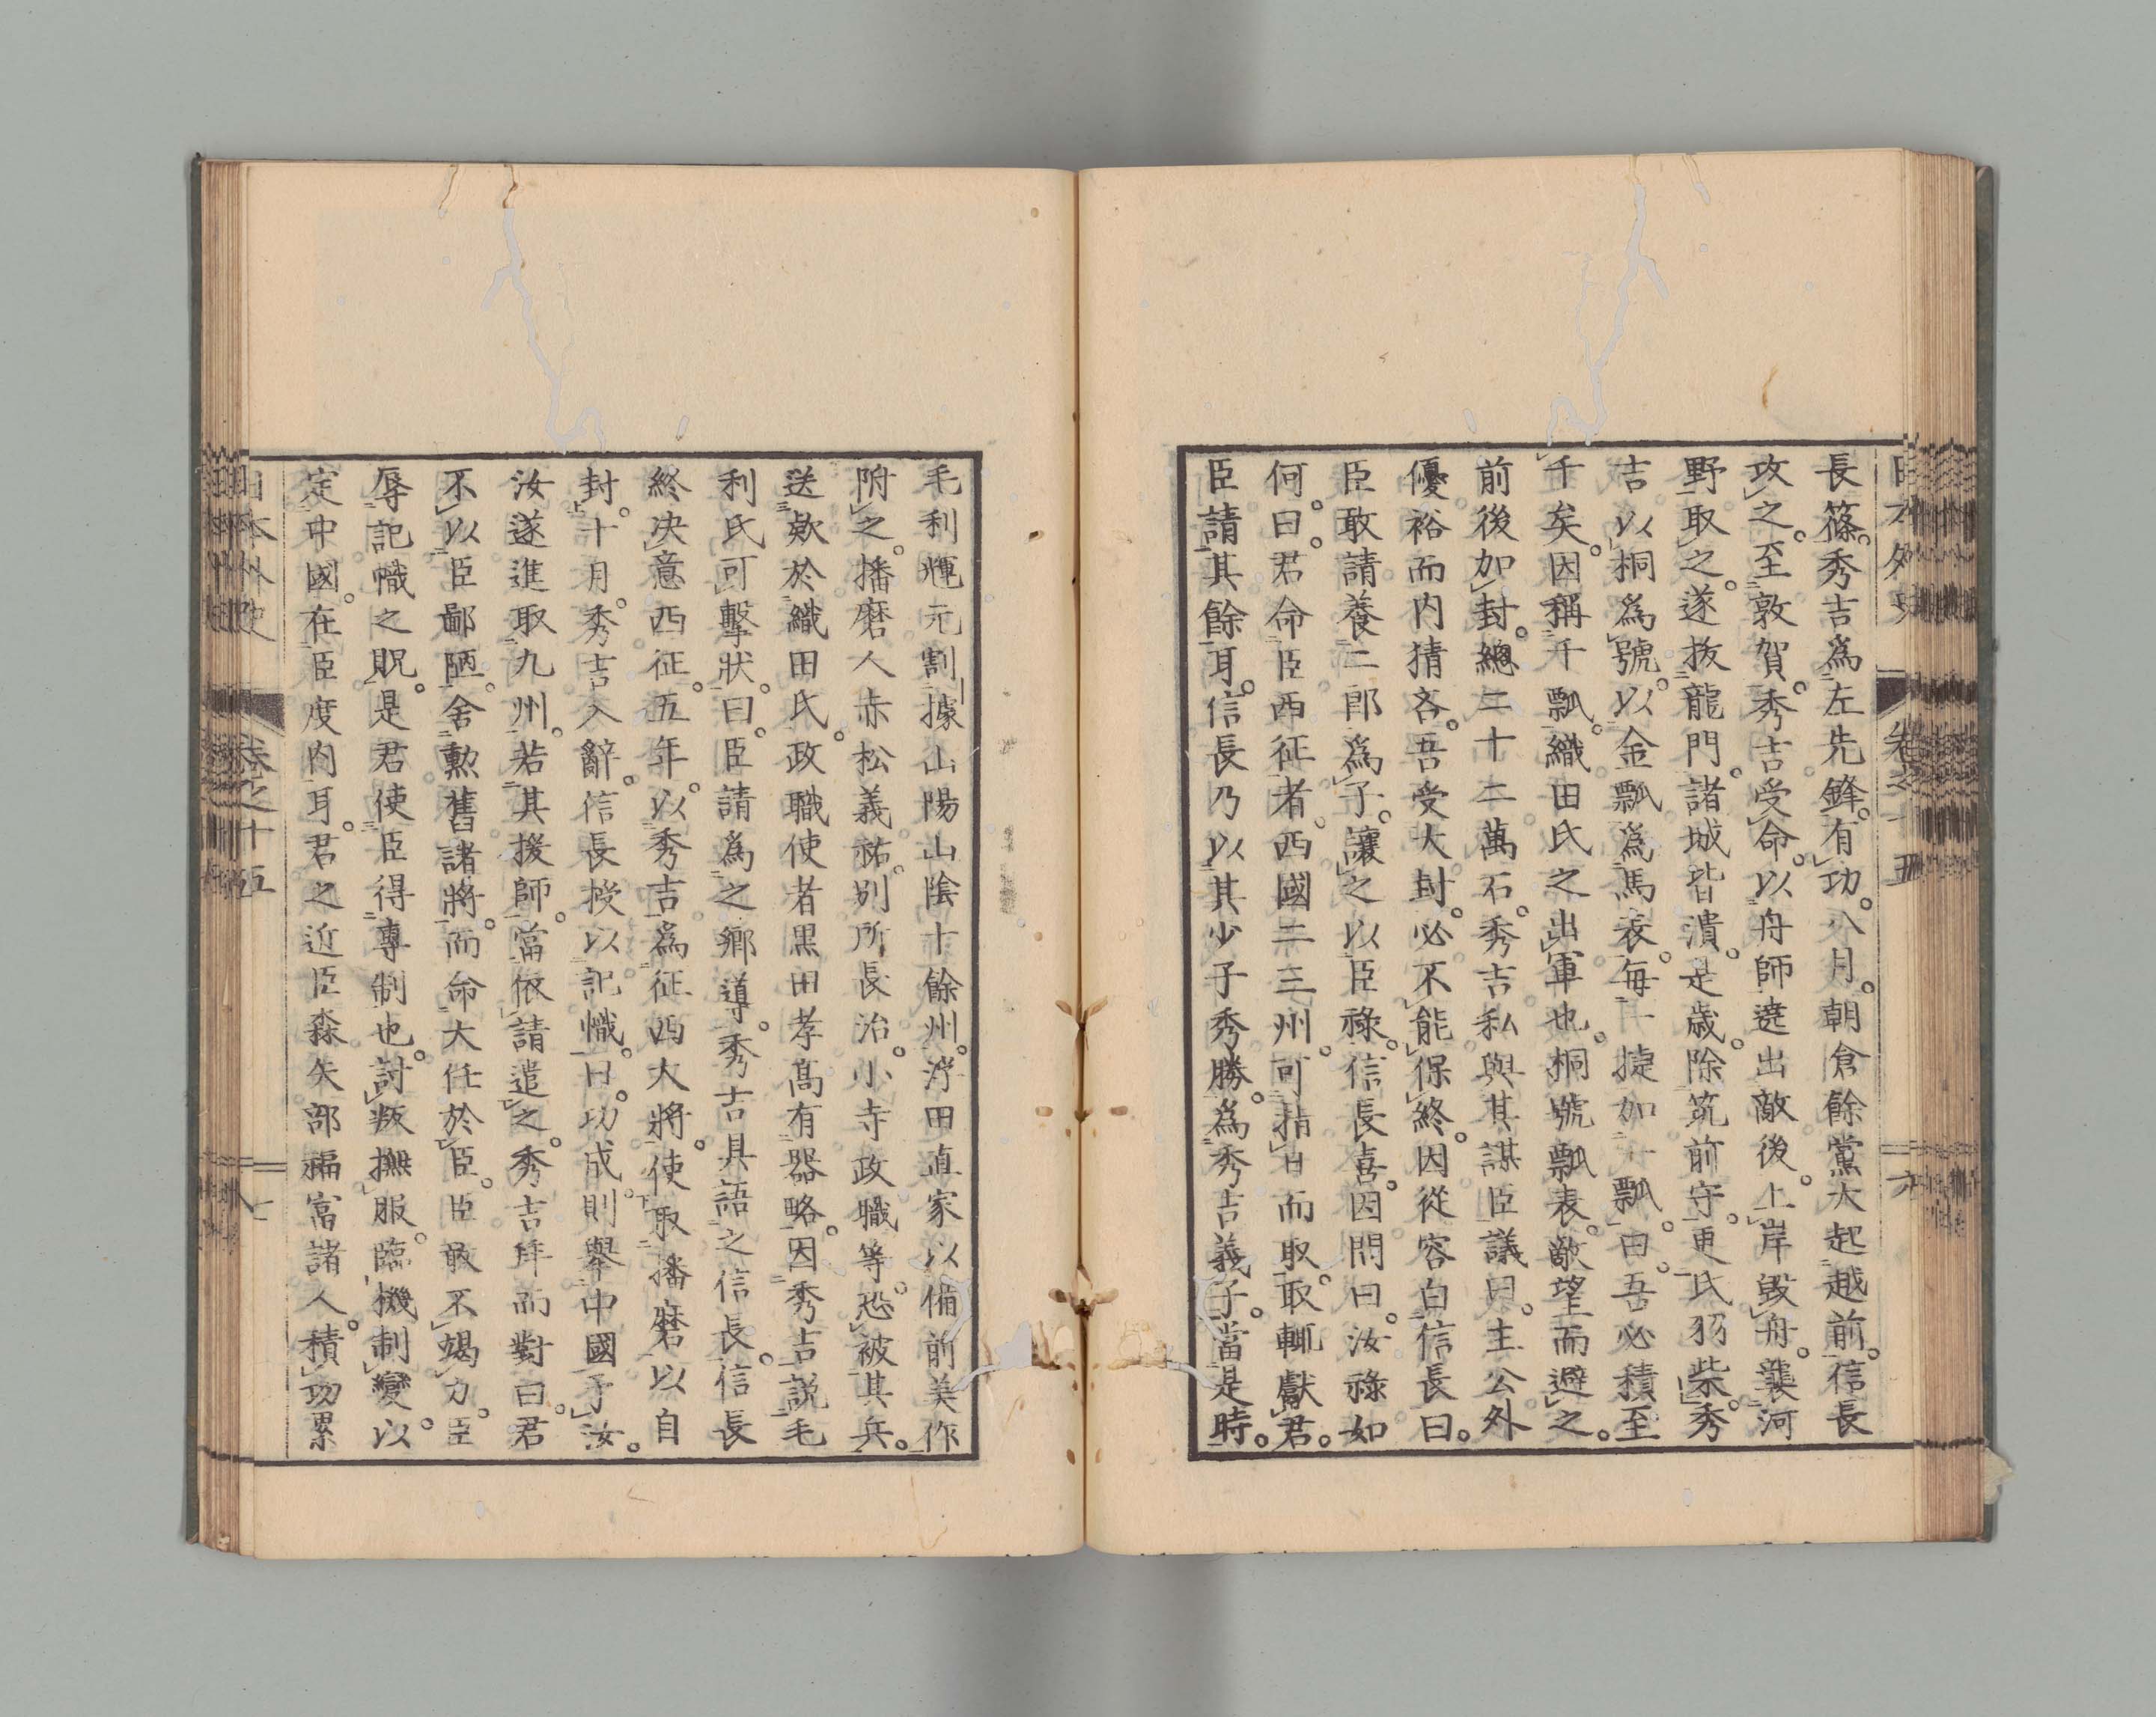 長篠。秀吉爲左先鋒。有功。八月。朝倉餘黨大起越前。信長
攻之。至敦賀。秀吉受命。以舟師遶出敵後。上岸毀舟。襲河
野。取之。遂拔龍門。諸城皆潰。是歲。除筑前守。更氏羽柴。秀
吉以桐爲號。以金瓢爲馬表。每一捷加一瓢。曰。吾必積至
千矣。因稱千瓢。織田氏之出軍也。桐號瓢表。敵望而避之。
前後加封。總二十二萬石。秀吉私與其謀臣議曰。主公外
優裕而内猜吝。吾受大封。必不能保終。因從容白信長曰。
臣敢請養二郎爲子。讓之以臣祿。信長喜。因問曰。汝祿如
何。曰。君命臣西征者。西國二三州。可指日而取。取輙獻君。
臣請其餘耳。信長乃以其少子秀勝。爲秀吉義子。當是時。
毛利輝元割據山陽山陰十餘州。浮田直家以備前美作
附之。播磨人赤松義祐。別所長治。小寺政職等。恐被其兵。
送欵於織田氏。政職使者黒田孝高有器略。因秀吉説毛
利氏可擊狀。曰。臣請爲之鄉導。秀吉具語之信長。信長
終决意西征。五年。以秀吉爲征西大將。使取播磨以自
封。十月。秀吉入辭。信長授以記幟。曰。功成。則舉中國予汝。
汝遂進取九州。若其援師。當依請遣之。秀吉拜而對曰。君
不以臣鄙陋。舍勲舊諸將。而命大任於臣。臣敢不竭力。臣
辱記幟之貺。是君使臣得專制也。討叛撫服。臨機制變。以
定中國。在臣度内耳。君之近臣森矢部福富諸人。積功累
日本外史 卷之十五 六
日本外史 卷之十五 七